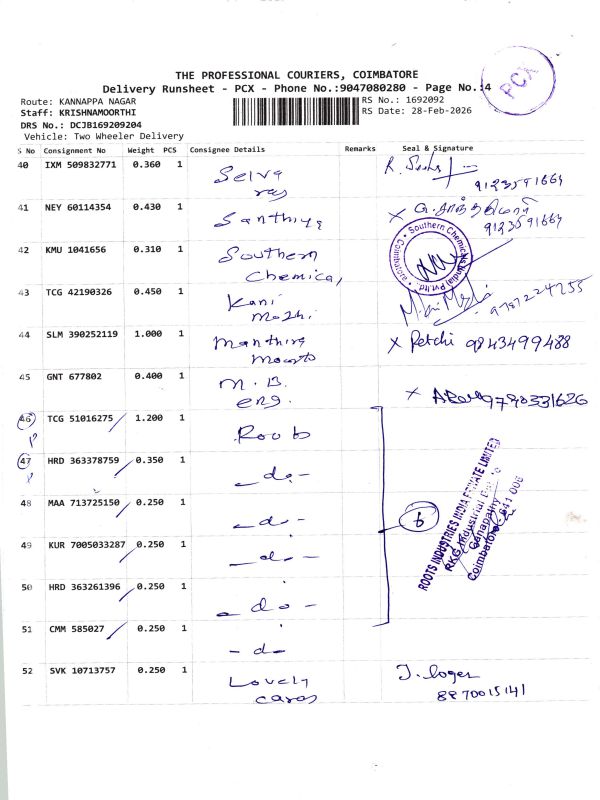 PCX
THE PROFESSIONAL COURIERS, COIMBATORE
Delivery Runsheet - PCX - Phone No.:9047080280 - Page No.:4
Route: KANNAPPA NAGAR
RS No.: 1692092
Staff: KRISHNAMOORTHI
RS Date: 28-Feb-2026
DRS No.: DCJB169209204
Vehicle: Two Wheeler Delivery
S No Consignment No Weight PCS Consignee Details Remarks Seal & Signature
40 IXM 509832771 0.360 1 Selva
ray
9123591664
41 NEY 60114354 0.430 1 Santhiya X
9123591664
42 KMU 1041656 0.310 1 Southern
Chemical
Southern Chemicals (India) Pvt. Ltd. Coimbatore
43 TCG 42190326 0.450 1 Kani
mozhi
9787224755
44 SLM 390252119 1.000 1 X Petchi 9843499488
45 GNT 677802 0.400 1 M.B.
eng.
X 9790331626
46 TCG 51016275 1.200 1 Roots
47 HRD 363378759 0.350 1 - do -
48 MAA 713725150 0.250 1 - do -
6
49 KUR 7005033287 0.250 1 - do -
ROOTS INDUSTRIES INDIA PRIVATE LIMITED
RKG Industrial
Ganapathy
Coimbatore 641 006
50 HRD 363261396 0.250 1 - do -
51 CMM 585027 0.250 1 - do -
52 SVK 10713757 0.250 1 Lovely
cards
J. loges
8870015141